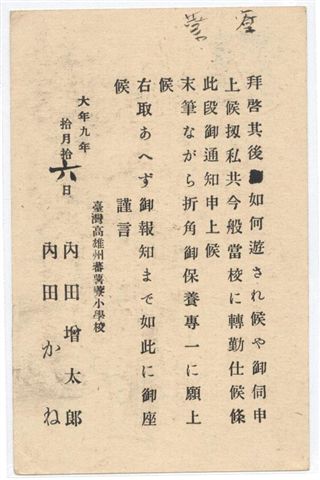 拜啓其後如何遊され候や御伺申
上候扨私共今般當校に轉勤仕候條
此段御通知申上候
末筆ながら折角御保養專一に願上
候
右取あへず御報知まで如此に御座
候　　　　　謹言
大年九年
拾月拾六日
臺灣高雄州蕃薯寮小學校
內田增太郎
內田かね